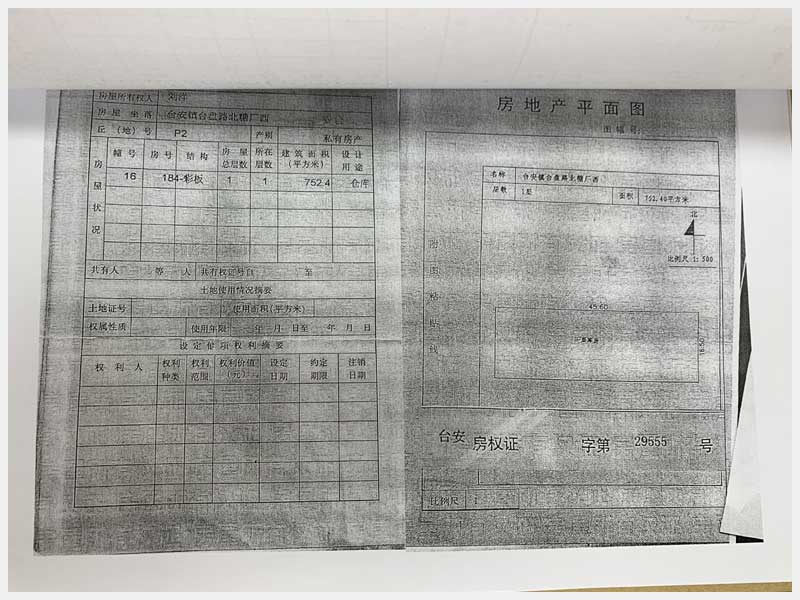 房屋所有权人 刘洋
房屋坐落 台安镇台盘路北糖厂西
丘(地)号 P2 产别 私有房产
房屋状况
幢号 房号 结构 房屋总层数 所在层数 建筑面积(平方米) 设计用途
16 184-彩板 1 1 752.4 仓库
共有人 等 人 共有权证号自 至
土地使用情况摘要
土地证号 使用面积(平方米)
权属性质 使用年限 年 月 日至 年 月 日
设定他项权利摘要
权利人 权利种类 权利范围 权利价值(元) 设定日期 约定期限 注销日期
房地产平面图
图幅号:
名称 台安镇台盘路北糖厂西
层数 1层 面积 752.40平方米
北
比例尺 1: 500
附图粘贴线
45.60
16.50
台安 房权证 字第 29555 号
比例尺 1: